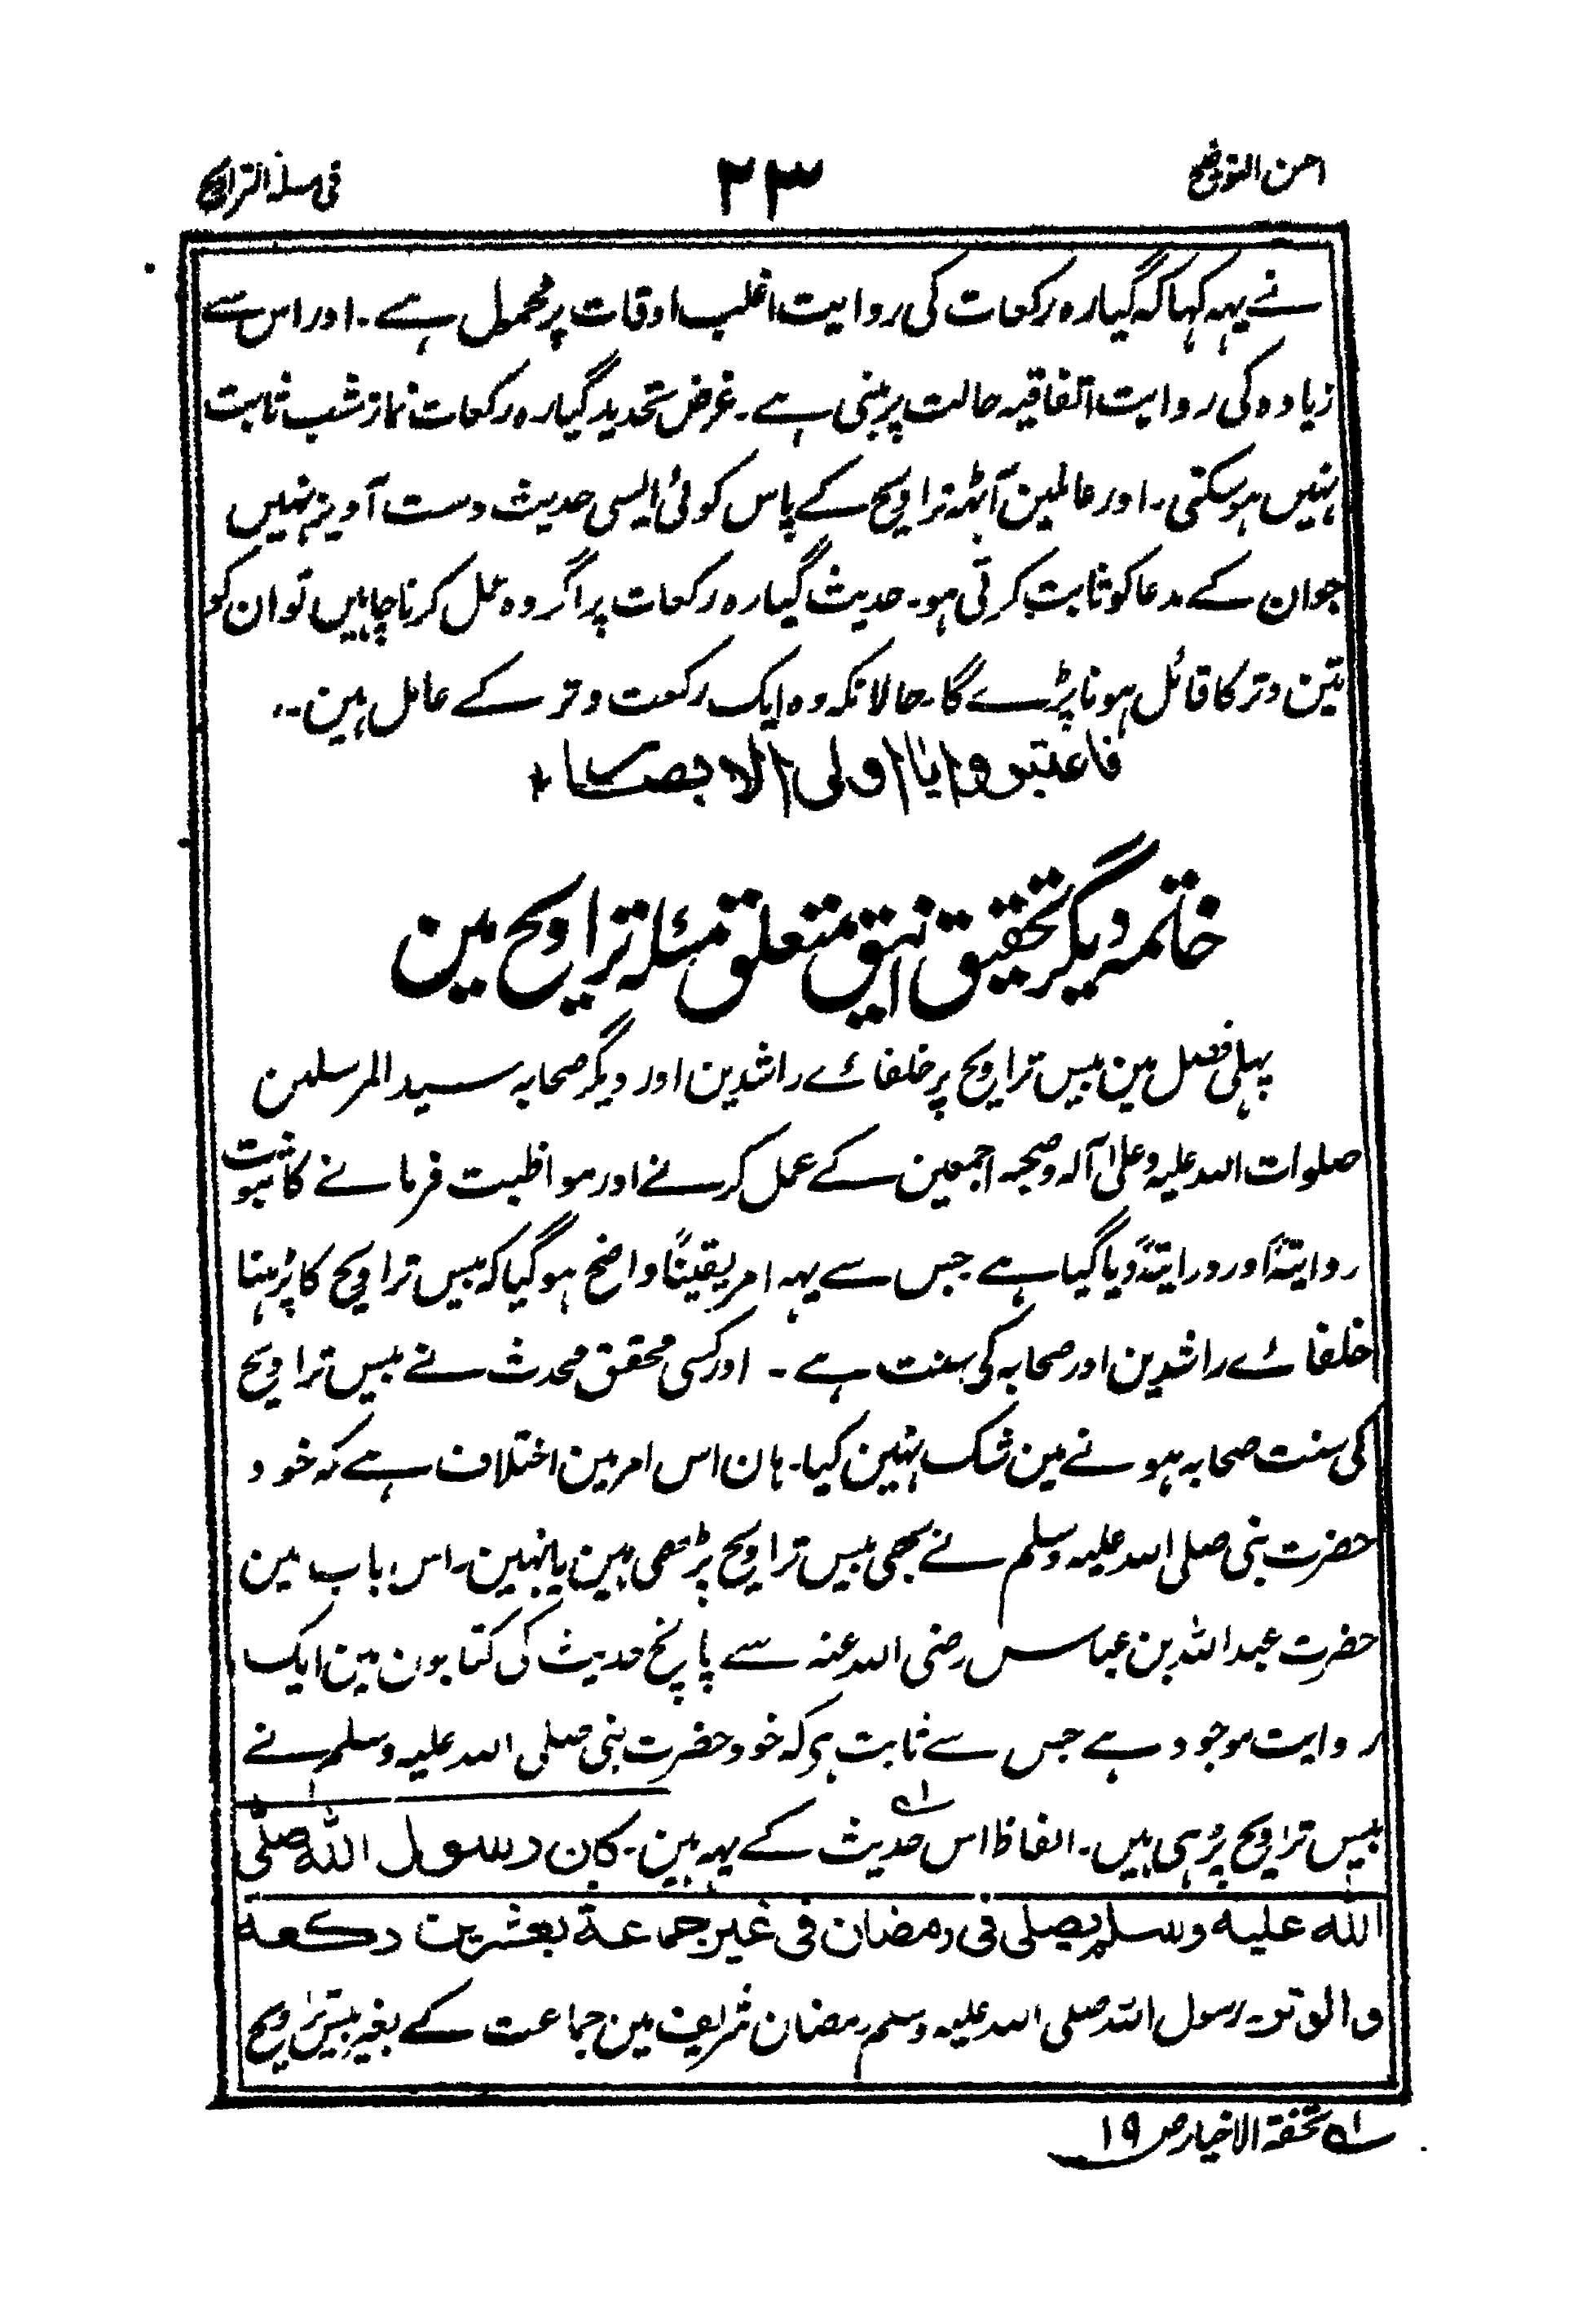 احسن التوضیح
۲۳
فی مسئلۃ التراویح
نے یہہ کہا کہ گیارہ رکعات کی روایت اغلب اوقات پر محمول ہے۔ اور اس سے
زیادہ کی روایت اتفاقیہ حالت پر مبنی ہے۔ غرض تحدید گیارہ رکعات نماز شب ثابت
نہیں ہو سکتی۔ اور عاملین آٹھہ تراویح کے پاس کوئی ایسی حدیث دست آویز نہیں
جو ان کے مدعا کو ثابت کرتی ہو۔ حدیث گیارہ رکعات پر اگر وہ عمل کرنا چاہیں تو ان کو
تین وتر کا قائل ہونا پڑے گا۔ حالانکہ وہ ایک رکعت وتر کے عامل ہین۔
فاعتبروا یا اولی الابصار
خاتمہ دیگر تحقیق انیق متعلق مسئلہ تراویح مین
پہلی فصل مین بیس تراویح پر خلفائے راشدین اور دیگر صحابہ سید المرسلین
صلوات اللہ علیہ وعلیٰ آلہ وصحبہ اجمعین کے عمل کرنے اور مواظبت فرمانے کا ثبوت
روایتہً اور درایتہً دیا گیا ہے جس سے یہہ امر یقیناً واضح ہو گیا کہ بیس تراویح کا پڑہنا
خلفائے راشدین اور صحابہ کی سنت ہے۔ اور کسی محقق محدث نے بیس تراویح
کی سنت صحابہ ہونے مین شک نہین کیا۔ ہان اس امر مین اختلاف ہے کہ خود
حضرت نبی صلی اللہ علیہ وسلم نے بھی بیس تراویح پڑھی ہین یا نہین۔ اس باب مین
حضرت عبد اللہ بن عباس رضی اللہ عنہ سے پانچ حدیث کی کتابون مین ایک
روایت موجود ہے جس سے ثابت ہی کہ خود حضرت نبی صلی اللہ علیہ وسلم نے
بیس تراویح پڑہی ہیں۔ الفاظ اس حدیث لہ کے یہہ ہین۔ کان رسول اللہ صلّی
اللہ علیہ وسلم یصلی فی رمضان فی غیر جماعۃ بعشرین رکعۃ
والوتر۔ رسول اللہ صلی اللہ علیہ وسلم رمضان شریف مین جماعت کے بغیر بیس تراویح
لہ تحفۃ الاخیار ص ۱۹